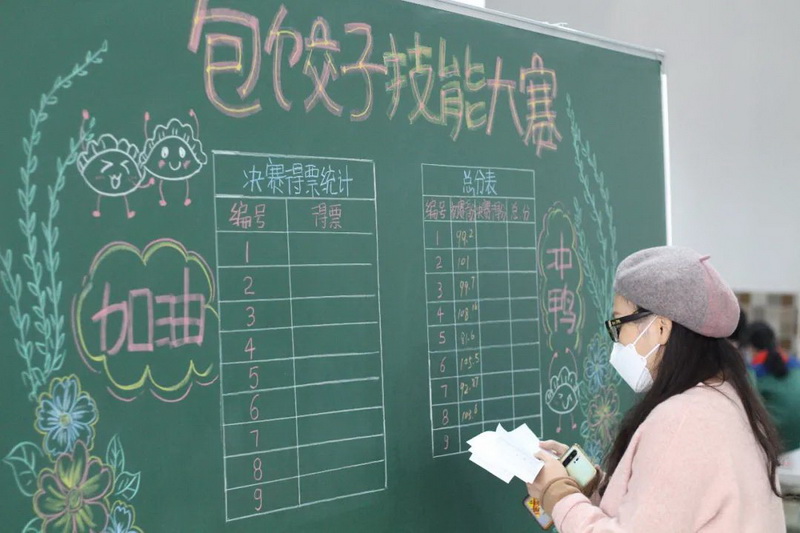 包饺子技能大赛
决赛得票统计
编号 得票
1
2
3
4
5
6
7
8
9
加油
总分表
编号 初赛得分 决赛得分 总分
1 99.2
2 101
3 99.7
4
5
6 103.5
7
8
9
冲鸭